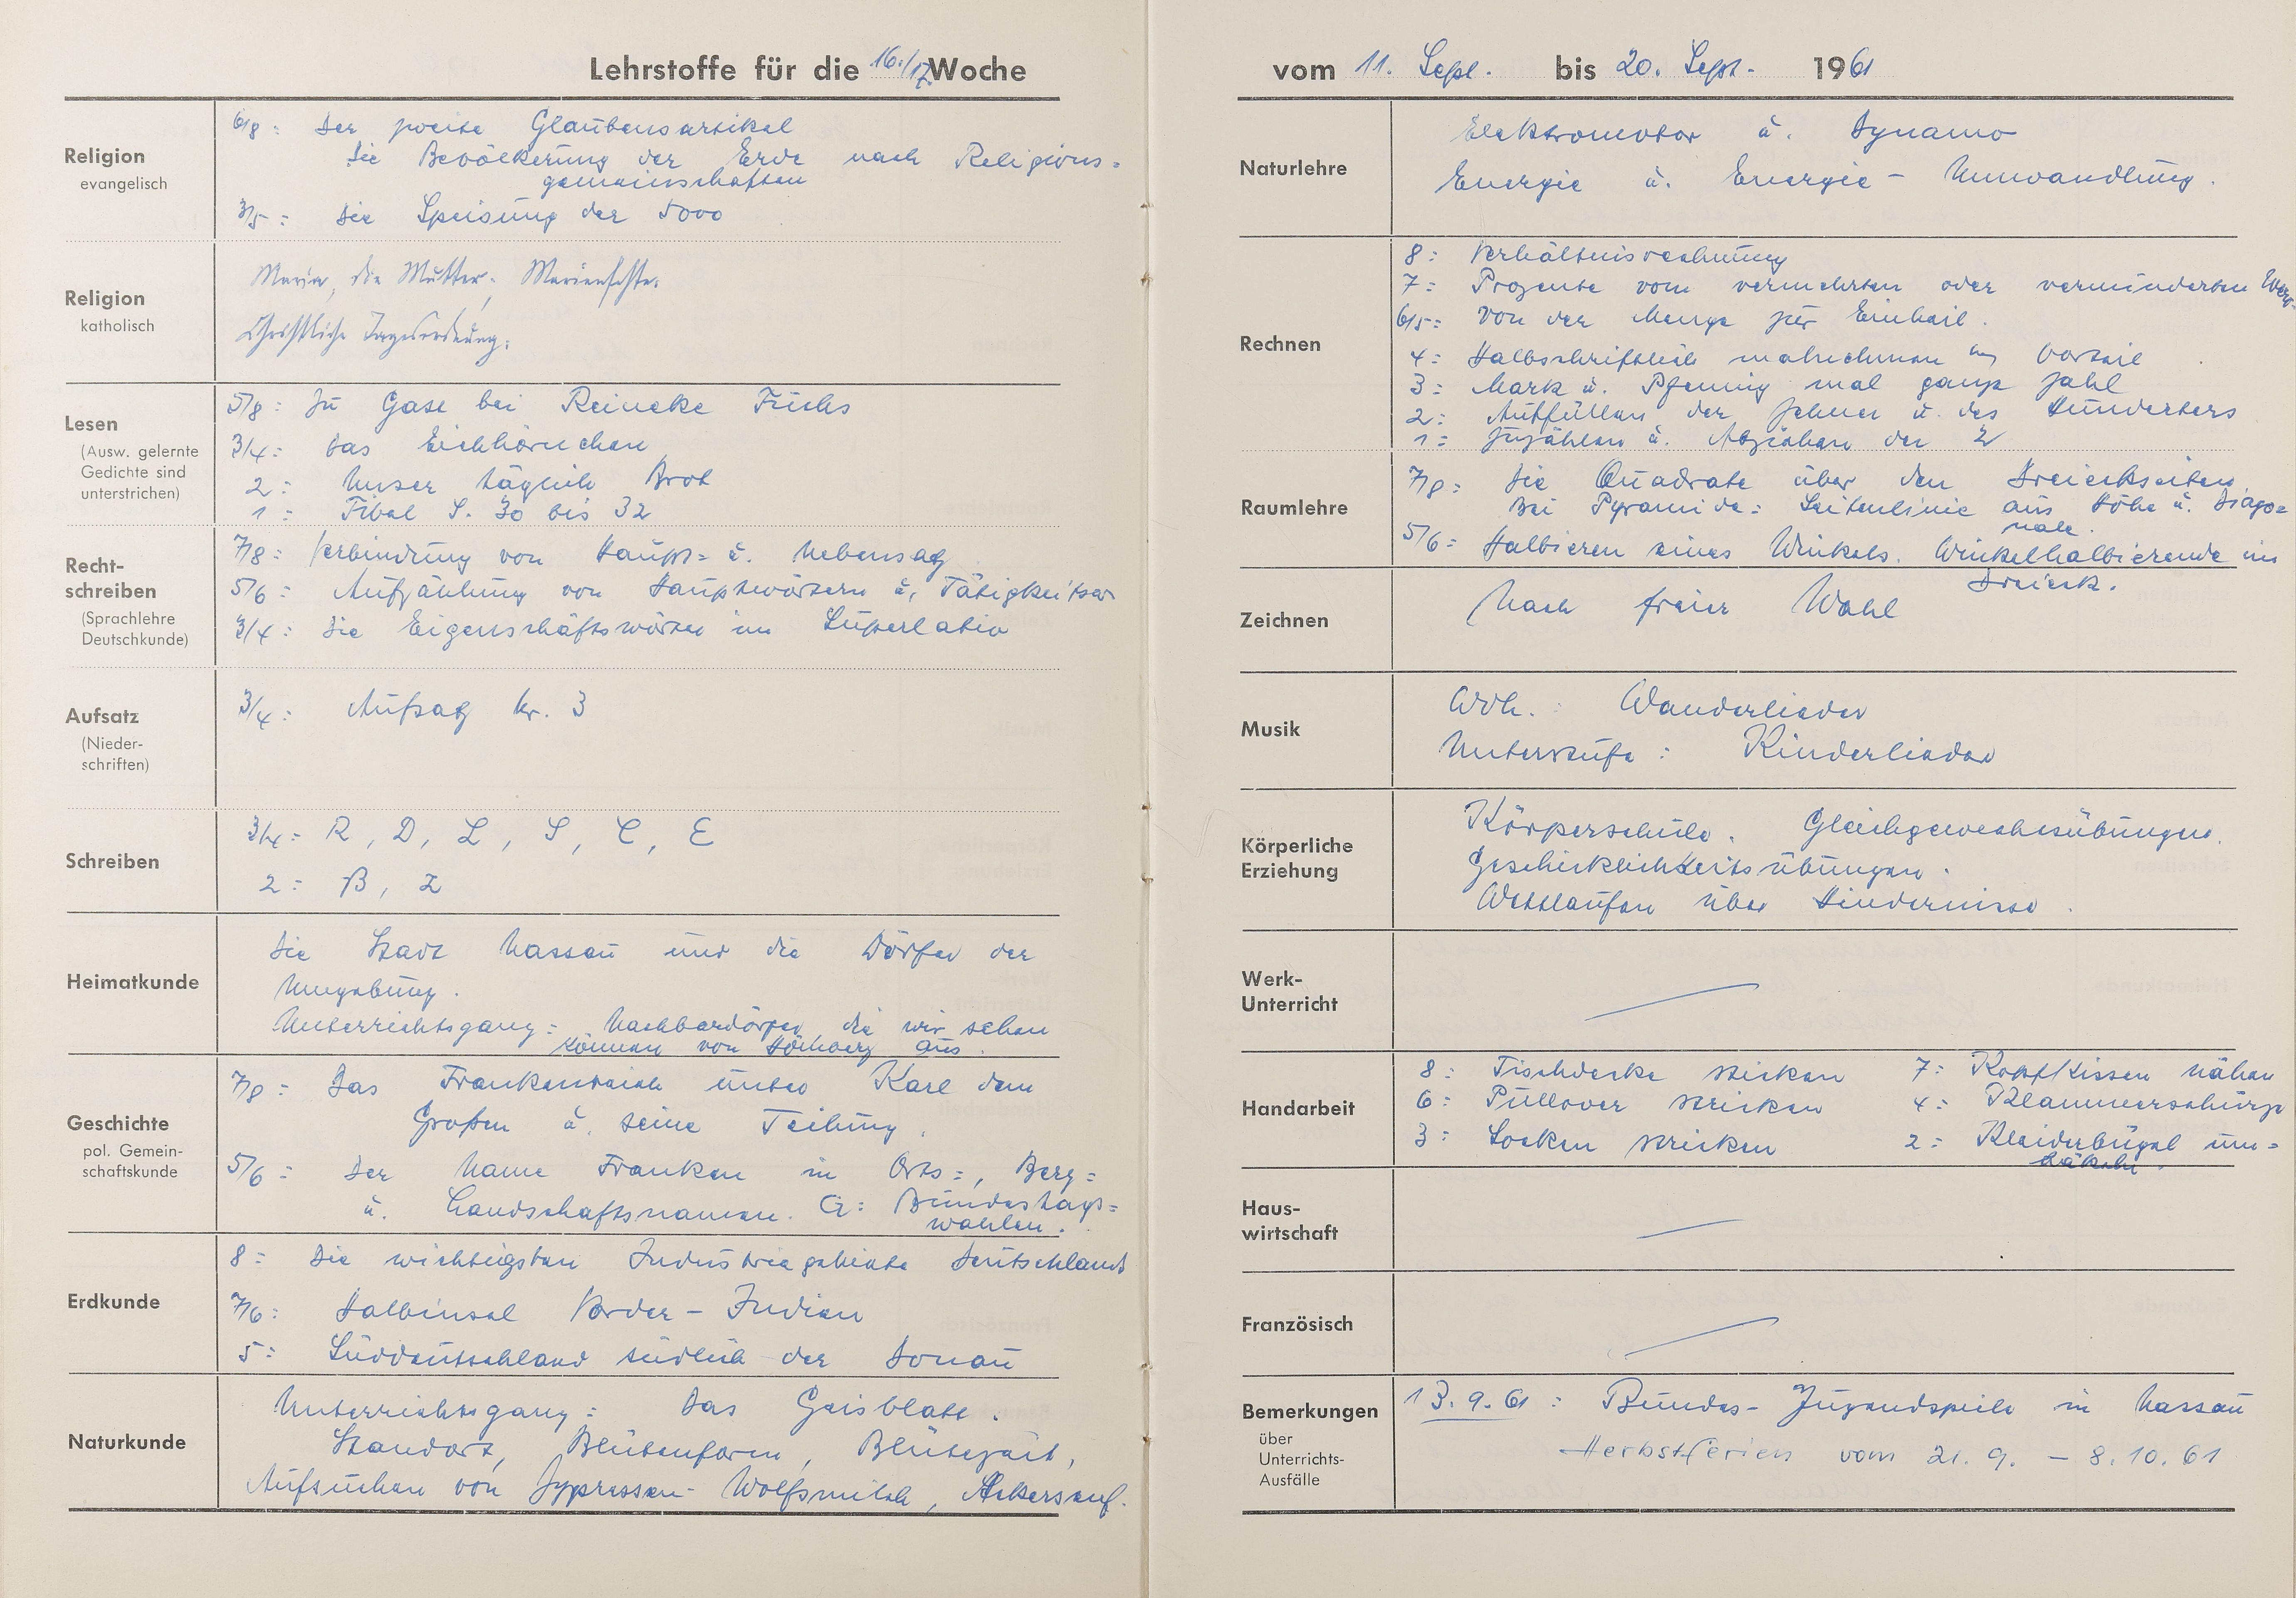 Lehrstoffe für die 16./17. Woche
Religion
evangelisch
6/8: Der zweite Glaubensartikel
Die Bevölkerung der Erde nach Religions=
gemeinschaften
3/5: Die Speisung der 5000
Religion
katholisch
Maria, die Mutter; Marienfeste.
Christliche Tagesordnung.
Lesen
(Ausw. gelernte
Gedichte sind
unterstrichen)
5/8: Zu Gast bei Reineke Fuchs
3/4: Das Eichhörnchen
2: Unser täglich Brot
1: Fibel S. 30 bis 32
Recht-
schreiben
(Sprachlehre
Deutschkunde)
7/8: Verbindung von Haupt= u. Nebensatz
5/6: Aufzählung von Hauptwörtern u. Tätigkeitsw
3/4: Die Eigenschaftswörter im Superlativ
Aufsatz
(Nieder-
schriften)
3/4: Aufsatz Nr. 3
Schreiben
3/4: R, D, L, S, C, E
2: B, Z
Heimatkunde
Die Stadt Nassau und die Dörfer der
Umgebung.
Unterrichtsgang: Nachbardörfer, die wir sehen
können von Höchberg aus.
Geschichte
pol. Gemein-
schaftskunde
7/8: Das Frankenreich unter Karl dem
Großen u. seine Teilung.
5/6: Der Name Franken in Orts=, Berg=
u. Landschaftsnamen. G: Bundestags=
wahlen.
Erdkunde
8: Die wichtigsten Industriegebiete Deutschlands
7/6: Halbinsel Vorder-Indien
5: Süddeutschland südlich der Donau
Naturkunde
Unterrichtsgang: Das Geisblatt.
Standort, Blütenform, Blütezeit,
Aufsuchen von Zypressen-Wolfsmilch, Ackersenf.
vom 11. Sept. bis 20. Sept. 1961
Naturlehre
Elektromotor u. Dynamo
Energie u. Energie-Umwandlung.
Rechnen
8: Verhältnisrechnung
7: Prozente vom vermehrten oder verminderten Wert
6/5: Von der Menge zur Einheit.
4: Halbschriftlich malnehmen Vorteil
3: Mark u. Pfennig mal ganze Zahl
2: Auffüllen der Zehner u. des Hunderters
1: Zuzählen u. Abziehen der 2
Raumlehre
7/8: Die Quadrate über den Dreieckseiten
Bei Pyramide: Seitenlinie aus Höhe u. Diago=
nale.
5/6: Halbieren eines Winkels. Winkelhalbierende im
Dreieck.
Zeichnen
Nach freier Wahl
Musik
Wdh.: Wanderlieder
Unterstufe: Kinderlieder
Körperliche
Erziehung
Körperschule. Gleichgewichtsübungen.
Geschicklichkeitsübungen.
Wettlaufen über Hindernisse.
Werk-
Unterricht
Handarbeit
8: Tischdecke sticken 7: Kopfkissen nähen
6: Pullover stricken 4: Klammerschürze
3: Socken stricken 2: Kleiderbügel um=
häkeln.
Haus-
wirtschaft
Französisch
Bemerkungen
über
Unterrichts-
Ausfälle
13.9.61: Bundes-Jugendspiele in Nassau
Herbstferien vom 21.9. – 8.10.61